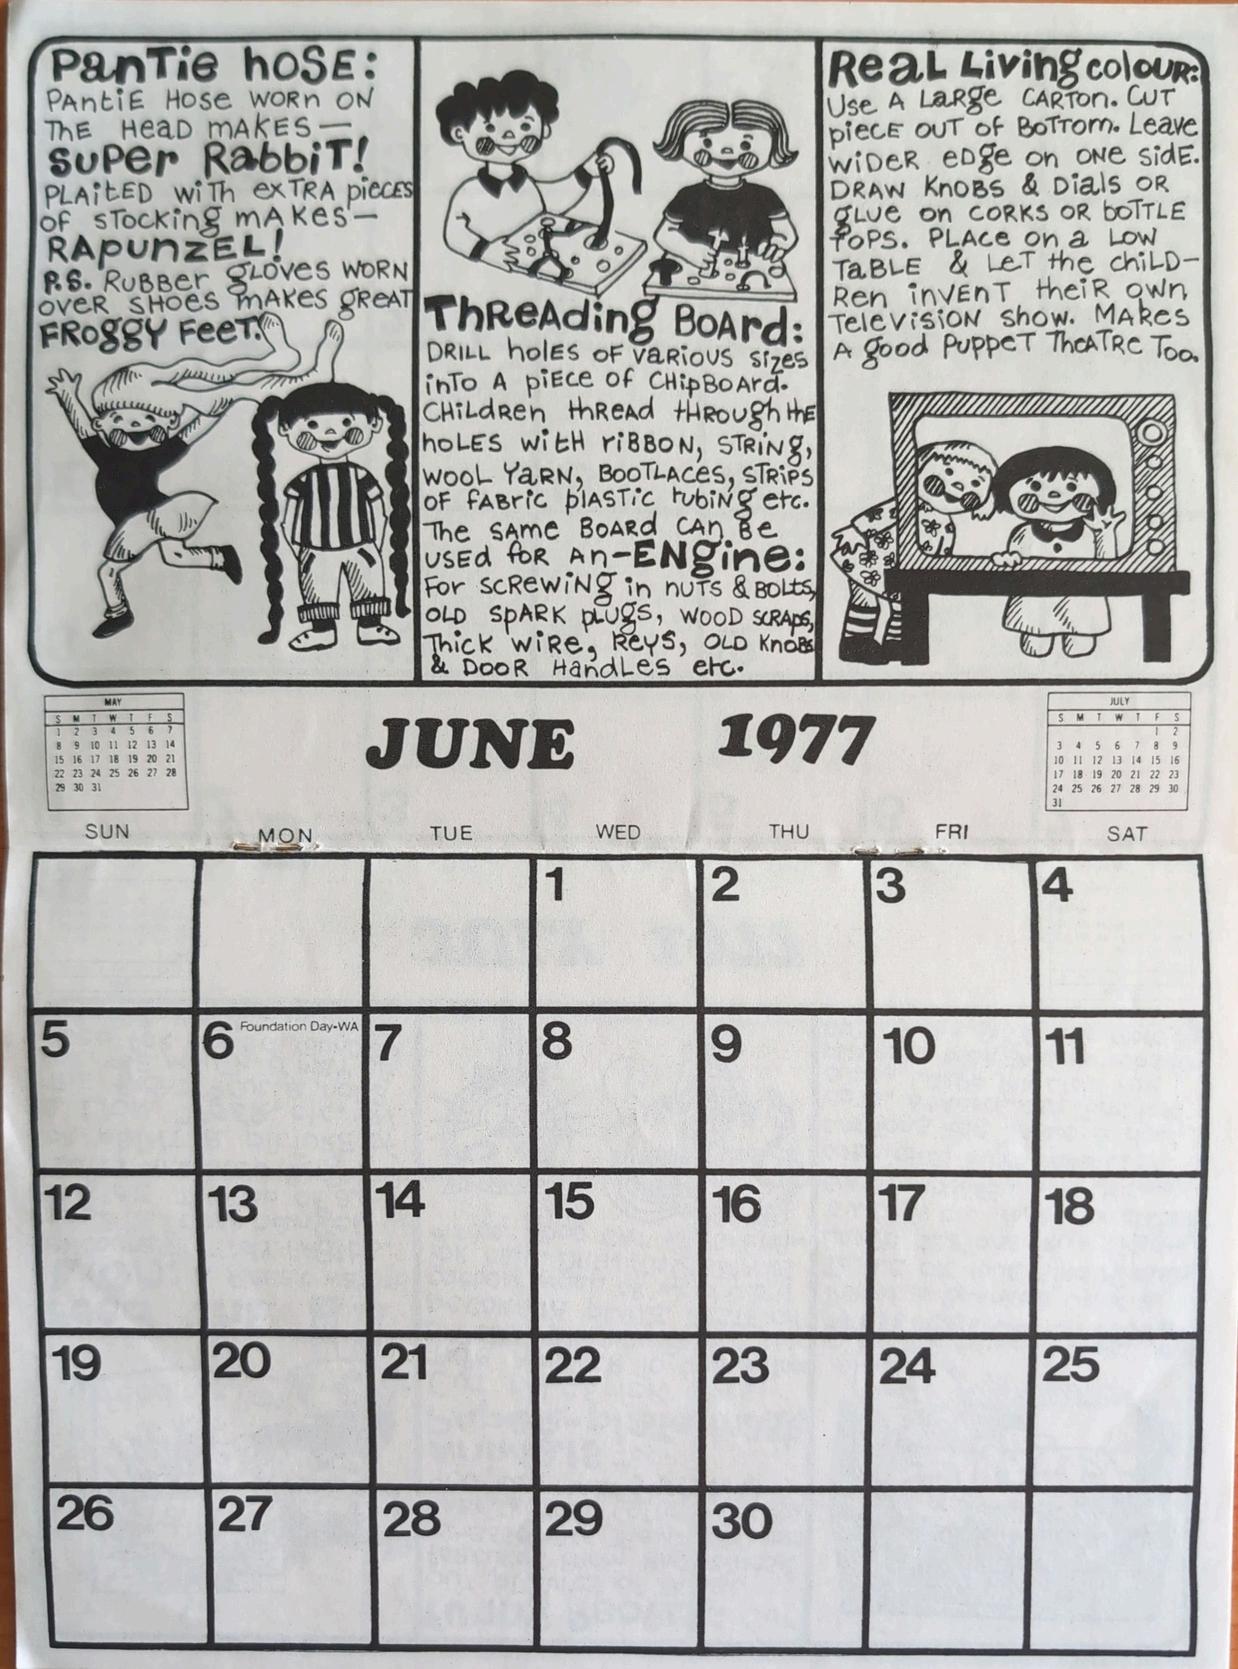 Pantie hose:
Pantie Hose worn on
the Head makes—
Super Rabbit!
Plaited with extra pieces
of stocking makes—
Rapunzel!
P.S. Rubber gloves worn
over shoes makes great
Froggy Feet!
Threading Board:
Drill holes of various sizes
into a piece of chipboard.
Children thread through the
holes with ribbon, string,
wool yarn, bootlaces, strips
of fabric plastic tubing etc.
The same board can be
used for an-Engine:
For screwing in nuts & bolts,
old spark plugs, wood scraps,
thick wire, keys, old knobs
& door handles etc.
Real Living colour:
Use a large carton. Cut
piece out of bottom. Leave
wider edge on one side.
Draw knobs & dials or
glue on corks or bottle
tops. Place on a low
table & let the child-
ren invent their own
television show. Makes
a good puppet theatre too.
MAY
S M T W T F S
1 2 3 4 5 6 7
8 9 10 11 12 13 14
15 16 17 18 19 20 21
22 23 24 25 26 27 28
29 30 31
JUNE 1977
JULY
S M T W T F S
1 2
3 4 5 6 7 8 9
10 11 12 13 14 15 16
17 18 19 20 21 22 23
24 25 26 27 28 29 30
31
SUN MON TUE WED THU FRI SAT
1 2 3 4
5 6 Foundation Day-WA 7 8 9 10 11
12 13 14 15 16 17 18
19 20 21 22 23 24 25
26 27 28 29 30